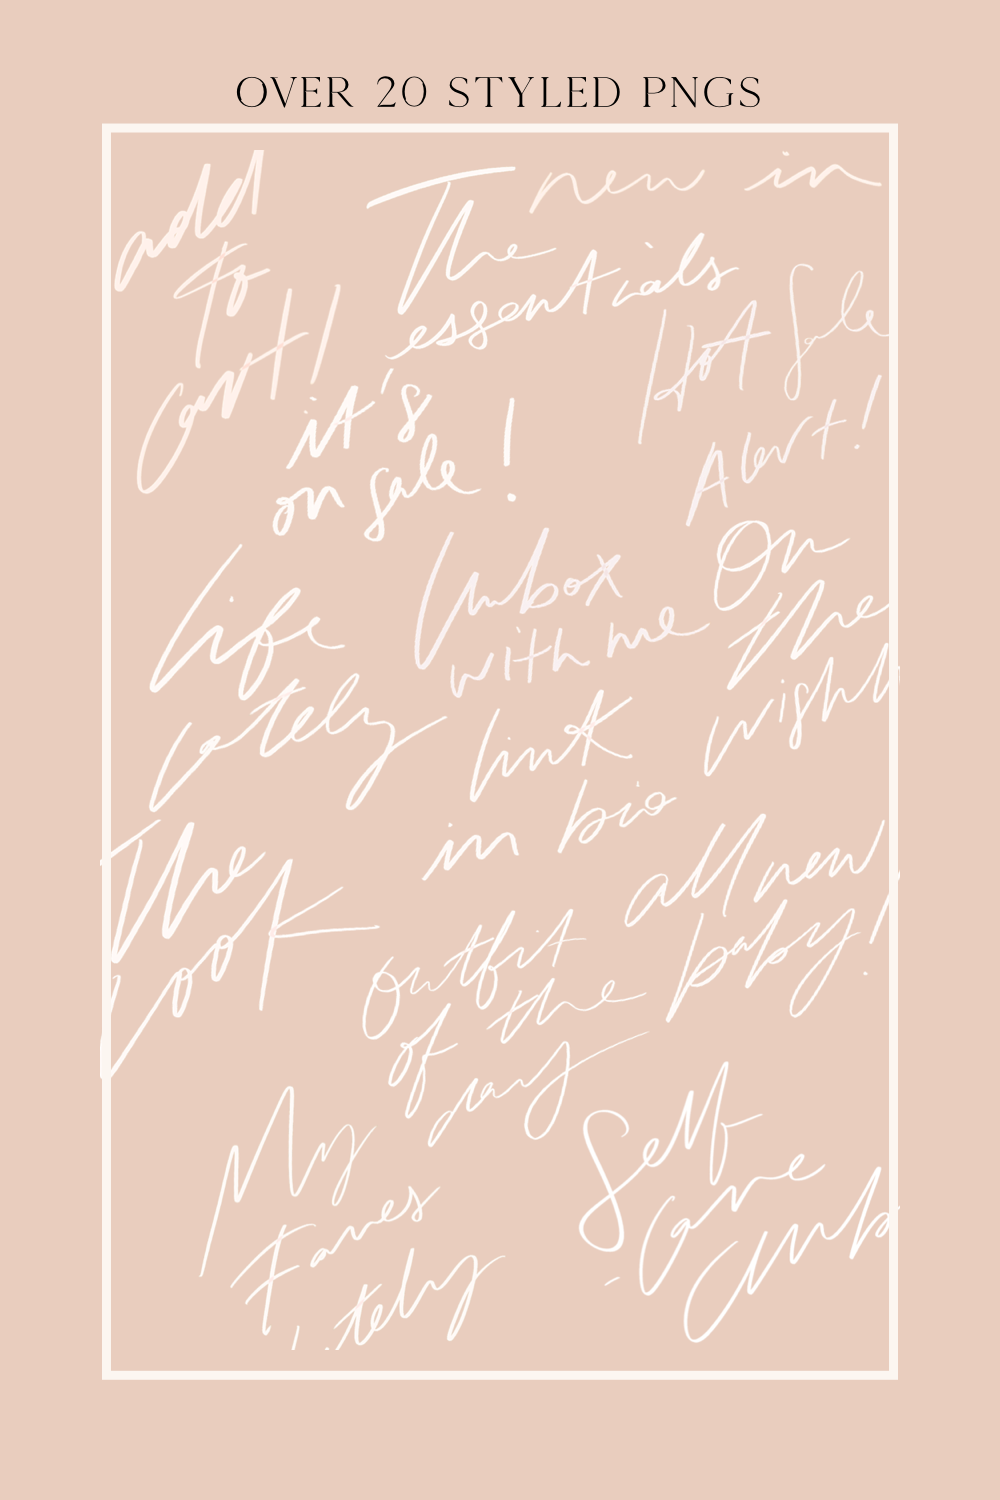 OVER 20 STYLED PNGS
add
to
cart!
The
essentials
new in
Hot Sale
Alert!
it's
on sale!
Life
lately
Unbox
with me
On
the
wishl
link
in bio
The
Look
all new
baby!
Outfit
of the
day
My
Faves
lately
Self
Care
Club